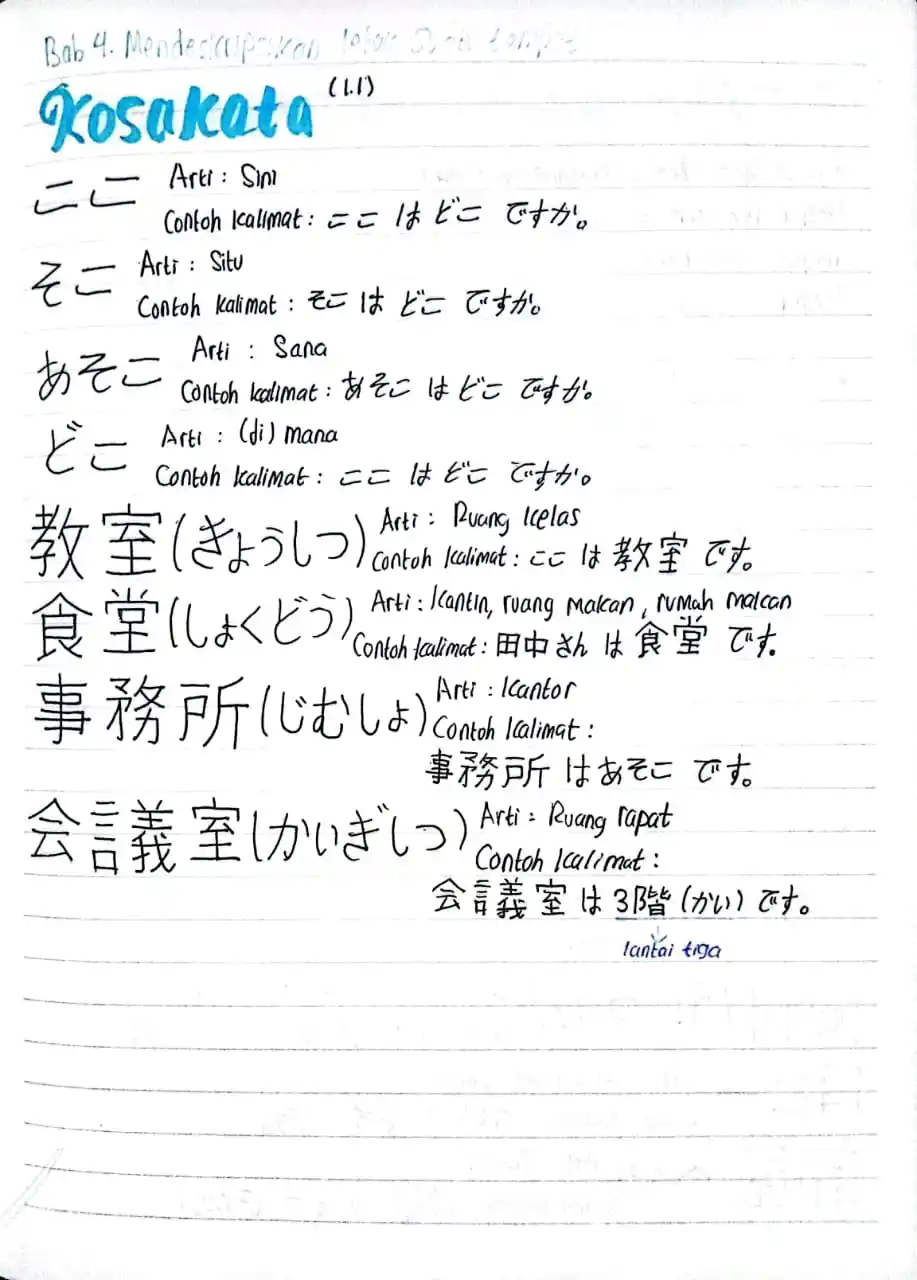 Bab 4. Mendeskripsikan letak suatu tempat
Kosakata (1.1)
ここ Arti : Sini
Contoh kalimat : ここ は どこ ですか。
そこ Arti : Situ
Contoh kalimat : そこ は どこ ですか。
あそこ Arti : Sana
Contoh kalimat : あそこ は どこ ですか。
どこ Arti : (di) mana
Contoh kalimat : ここ は どこ ですか。
教室(きょうしつ) Arti : Ruang kelas
Contoh kalimat : ここ は 教室 です。
食堂(しょくどう) Arti : Kantin, ruang makan, rumah makan
Contoh kalimat : 田中さん は 食堂 です。
事務所(じむしょ) Arti : Kantor
Contoh kalimat :
事務所 はあそこ です。
会議室(かいぎしつ) Arti : Ruang rapat
Contoh kalimat :
会議室 は 3階 (かい) です。
lantai tiga